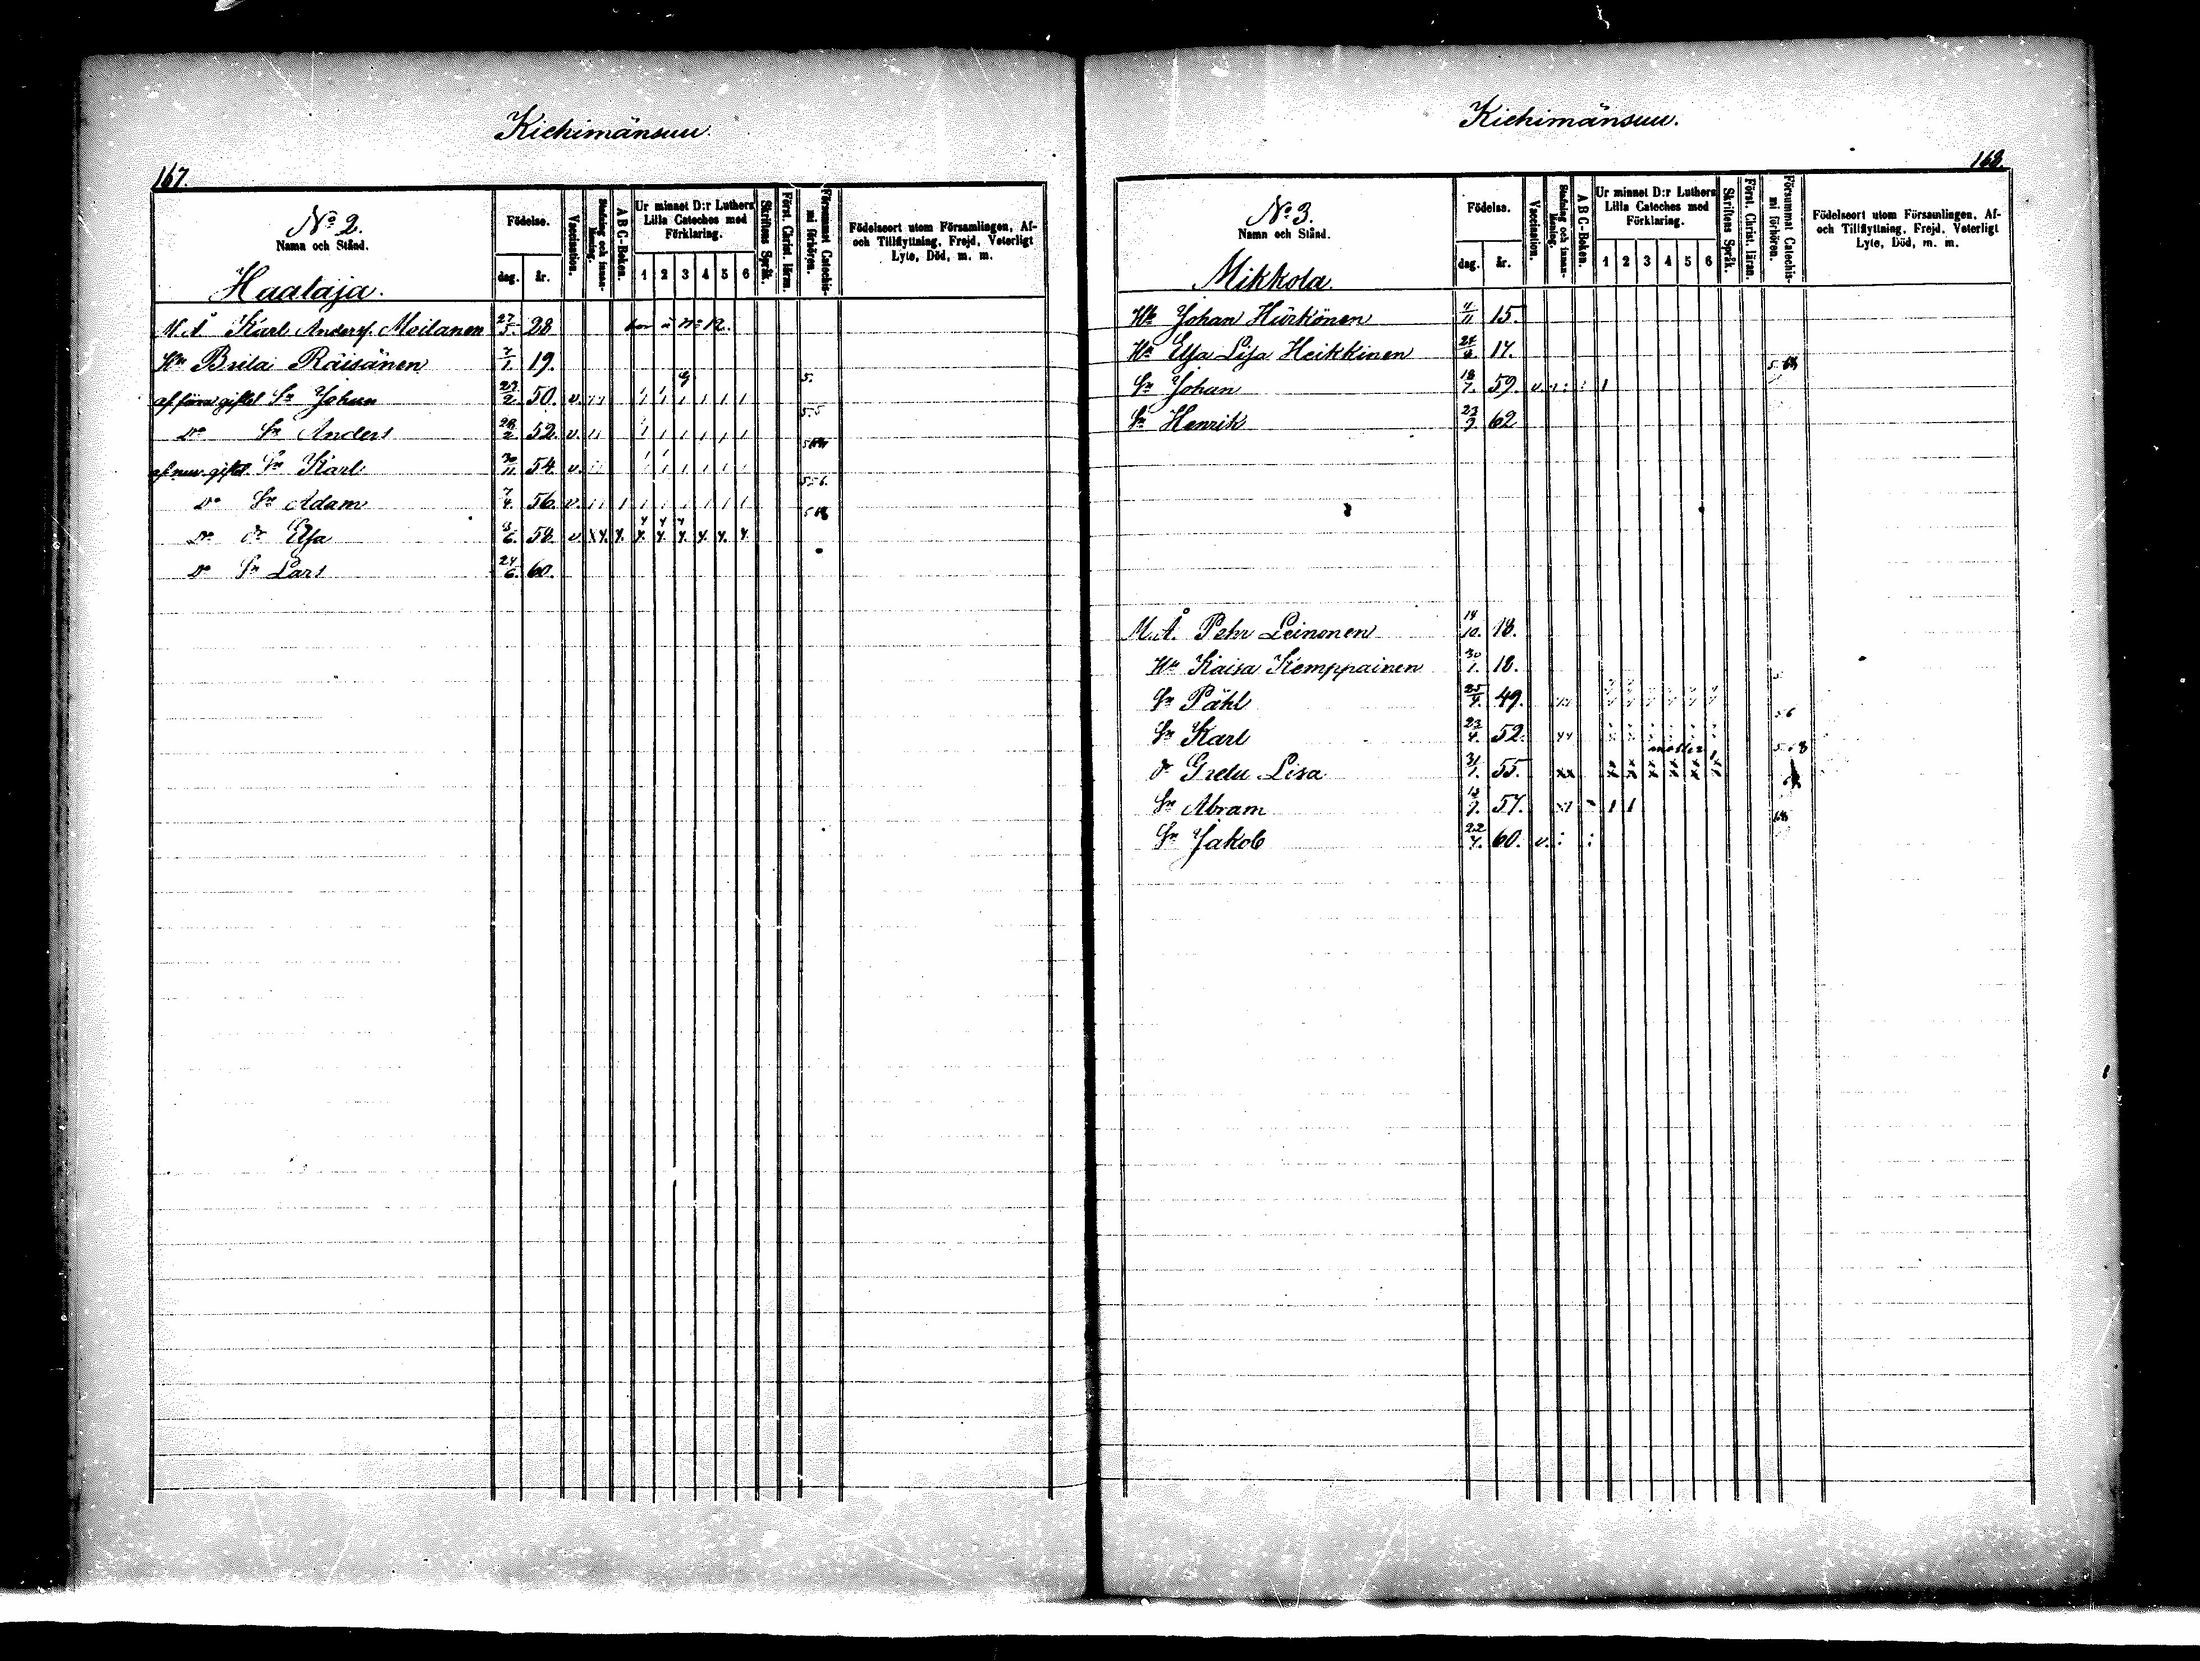 Kiehimänsuu.
167.
No 2.
Namn och Stånd.
Födelse.
dag.
år.
Vaccination.
Stafning och innan-läsning.
A B C-Boken.
Ur minnet D:r Luthers Lilla Cateches med Förklaring.
1 2 3 4 5 6
Skriftens Språk.
Först. Christ. läran.
Försummat Catechis-mi förhören.
Födelseort utom Församlingen, Af- och Tillflyttning, Frejd, Veterligt Lyte, Död, m. m.
Haataja.
M.Å Karl Anderss. Moilanen 27/5. 28 bor å No 12.
Hu Brita Räisänen 7/1. 19.
Sn Johan 23/2. 50. v.
Do Sn Anders 28/2 52. v.
Sn Karl 30/11 54. v.
Do Sn Adam 7/4. 56. v.
Do dr Elsa 8/6. 58. v.
Do Sn Lars 24/6. 60.
Kiehimänsuu.
168.
No 3.
Namn och Stånd.
Födelse.
dag.
år.
Vaccination.
Stafning och innan-läsning.
A B C-Boken.
Ur minnet D:r Luthers Lilla Cateches med Förklaring.
1 2 3 4 5 6
Skriftens Språk.
Först. Christ. läran.
Försummat Catechis-mi förhören.
Födelseort utom Församlingen, Af- och Tillflyttning, Frejd, Veterligt Lyte, Död, m. m.
Mikkola.
Johan Härkönen 11 15.
Hu Elsa Lisa Heikkinen 17.
Sn Johan 18/7. 59. v.
Sn Henrik 23/3 62
M.Å. Pehr Leinonen 14/10. 18.
Hu Kaisa Kemppainen 30/1. 18.
Sn Påhl 49.
Sn Karl 23/4. 52.
dr Greta Lisa 31/1. 55.
Sn Abram 57.
Sn Jakob 60. v.